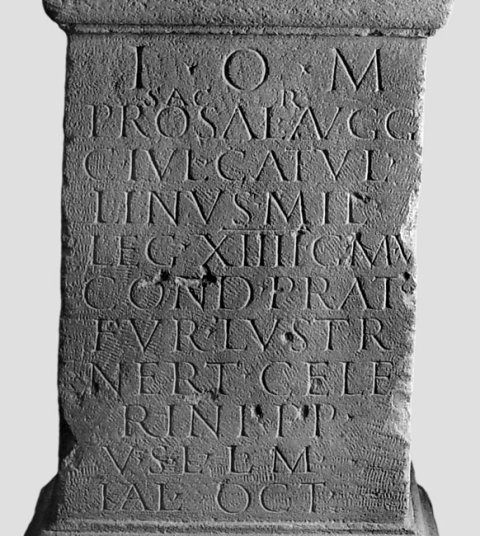 I · O · M
SACR
PRO SAL AVGG
C IVL CATVL
LINVS MIL
LEG XIIII G M V
COND PRAT
FVR LVSTR
NERT CELE
RINI P P
V S L L M
IAL OCT